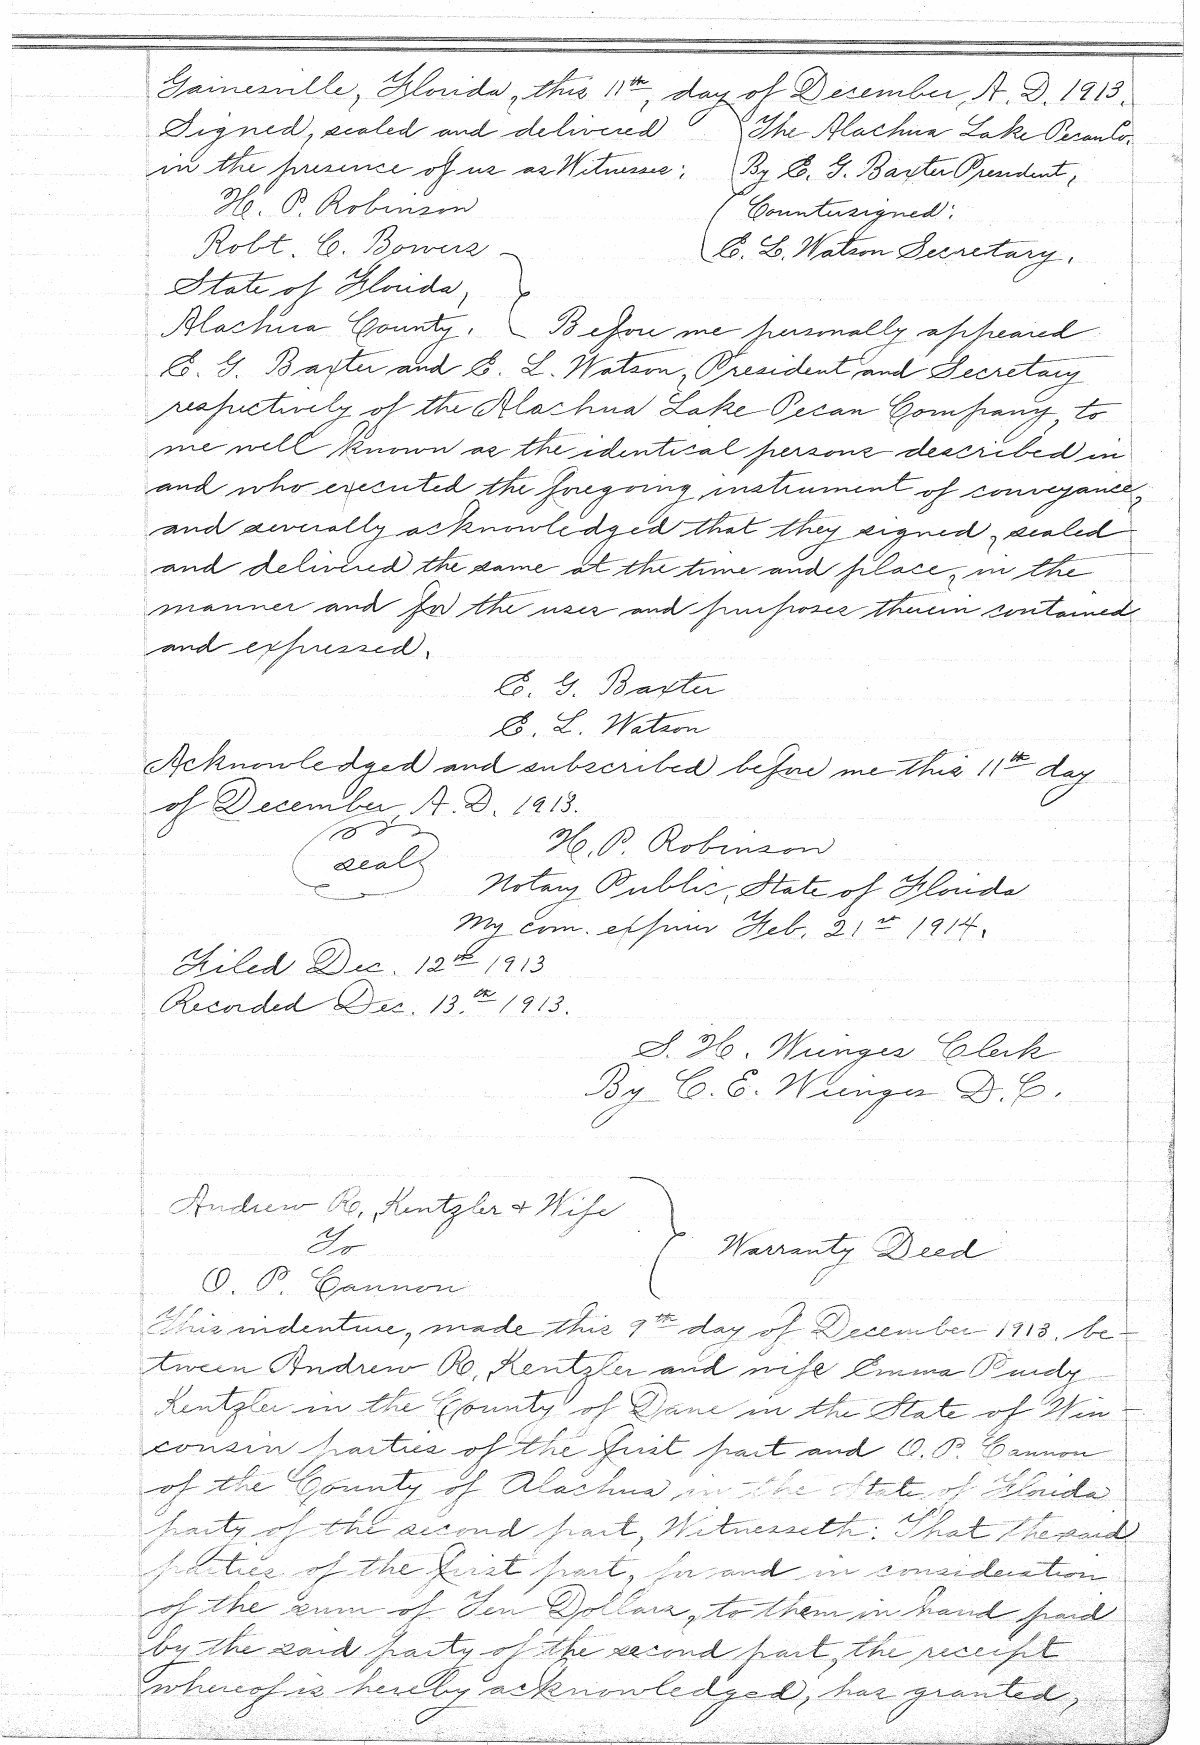 Gainesville, Florida, this 11th, day of December, A. D. 1913.
Signed, sealed and delivered
in the presence of us as Witnesses:
H. P. Robinson
Robt. C. Bowers
The Alachua Lake Pecan Co.
By E. G. Baxter President,
Countersigned:
E. L. Watson Secretary.
State of Florida,
Alachua County. Before me personally appeared
E. G. Baxter and E. L. Watson, President and Secretary
respectively of the Alachua Lake Pecan Company, to
me well known as the identical persons described in
and who executed the foregoing instrument of conveyance,
and severally acknowledged that they signed, sealed
and delivered the same at the time and place, in the
manner and for the uses and purposes therein contained
and expressed.
E. G. Baxter
E. L. Watson
Acknowledged and subscribed before me this 11th day
of December A. D. 1913.
seal
H. P. Robinson
Notary Public, State of Florida
My com. expires Feb. 21st 1914.
Filed Dec. 12th 1913
Recorded Dec. 13th 1913.
S. H. Wienges Clerk
By C. E. Wienges D. C.
Andrew R. Kentzler & Wife
To
O. P. Cannon
Warranty Deed
This indenture, made this 9th day of December 1913, be-
tween Andrew R. Kentzler and wife Emma Purdy
Kentzler in the County of Dane in the State of Win-
consin parties of the first part and O. P. Cannon
of the County of Alachua in the State of Florida
party of the second part, Witnesseth: That the said
parties of the first part, for and in consideration
of the sum of Ten Dollars, to them in hand paid
by the said party of the second part, the receipt
whereof is hereby acknowledged, has granted,